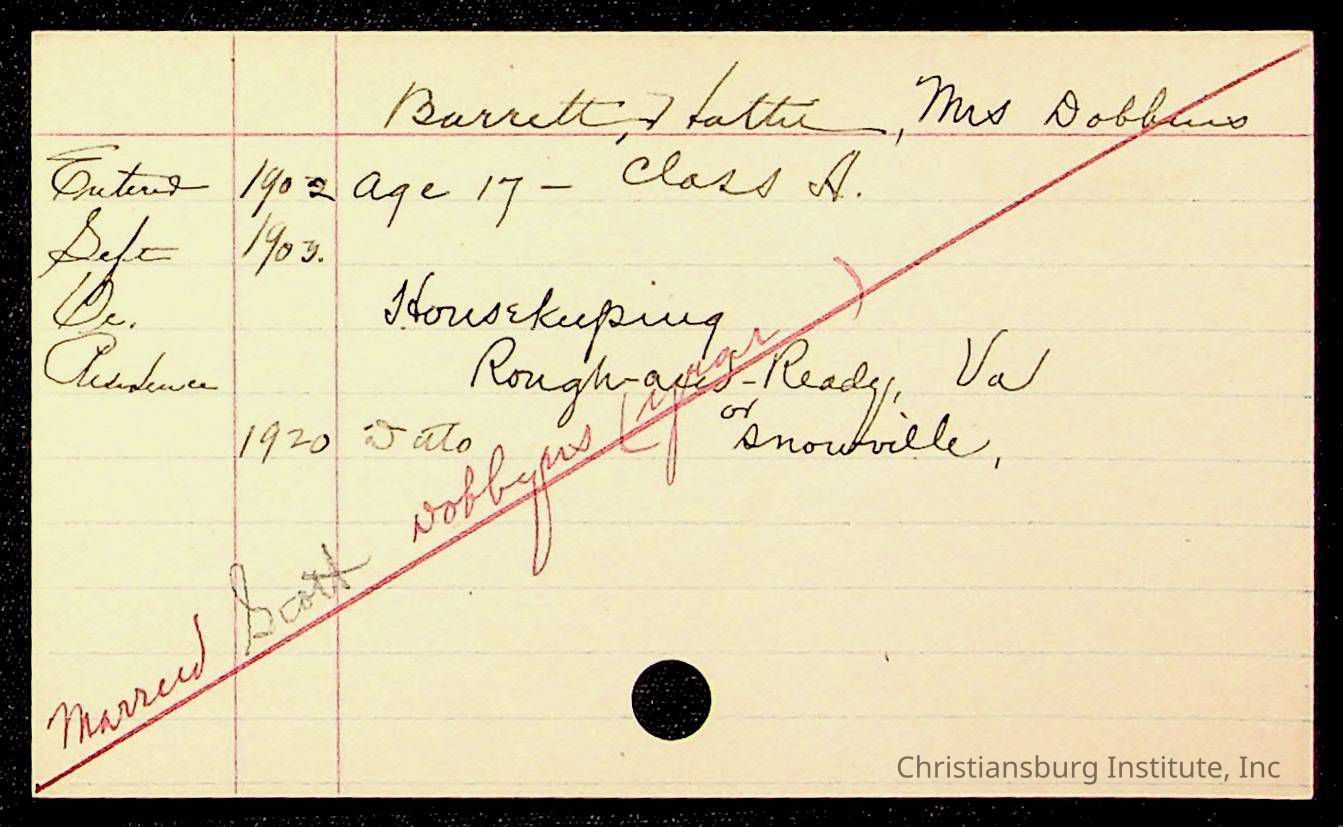 Barrett, Hattie, Mrs Dobbins
Entered 1902 age 17 - Class A.
Left 1903.
Oc. Housekeeping
Residence Rough-and-Ready, Va
or
1920 Ditto Snowville,
Married Scott Dobbyns (
)
Christiansburg Institute, Inc